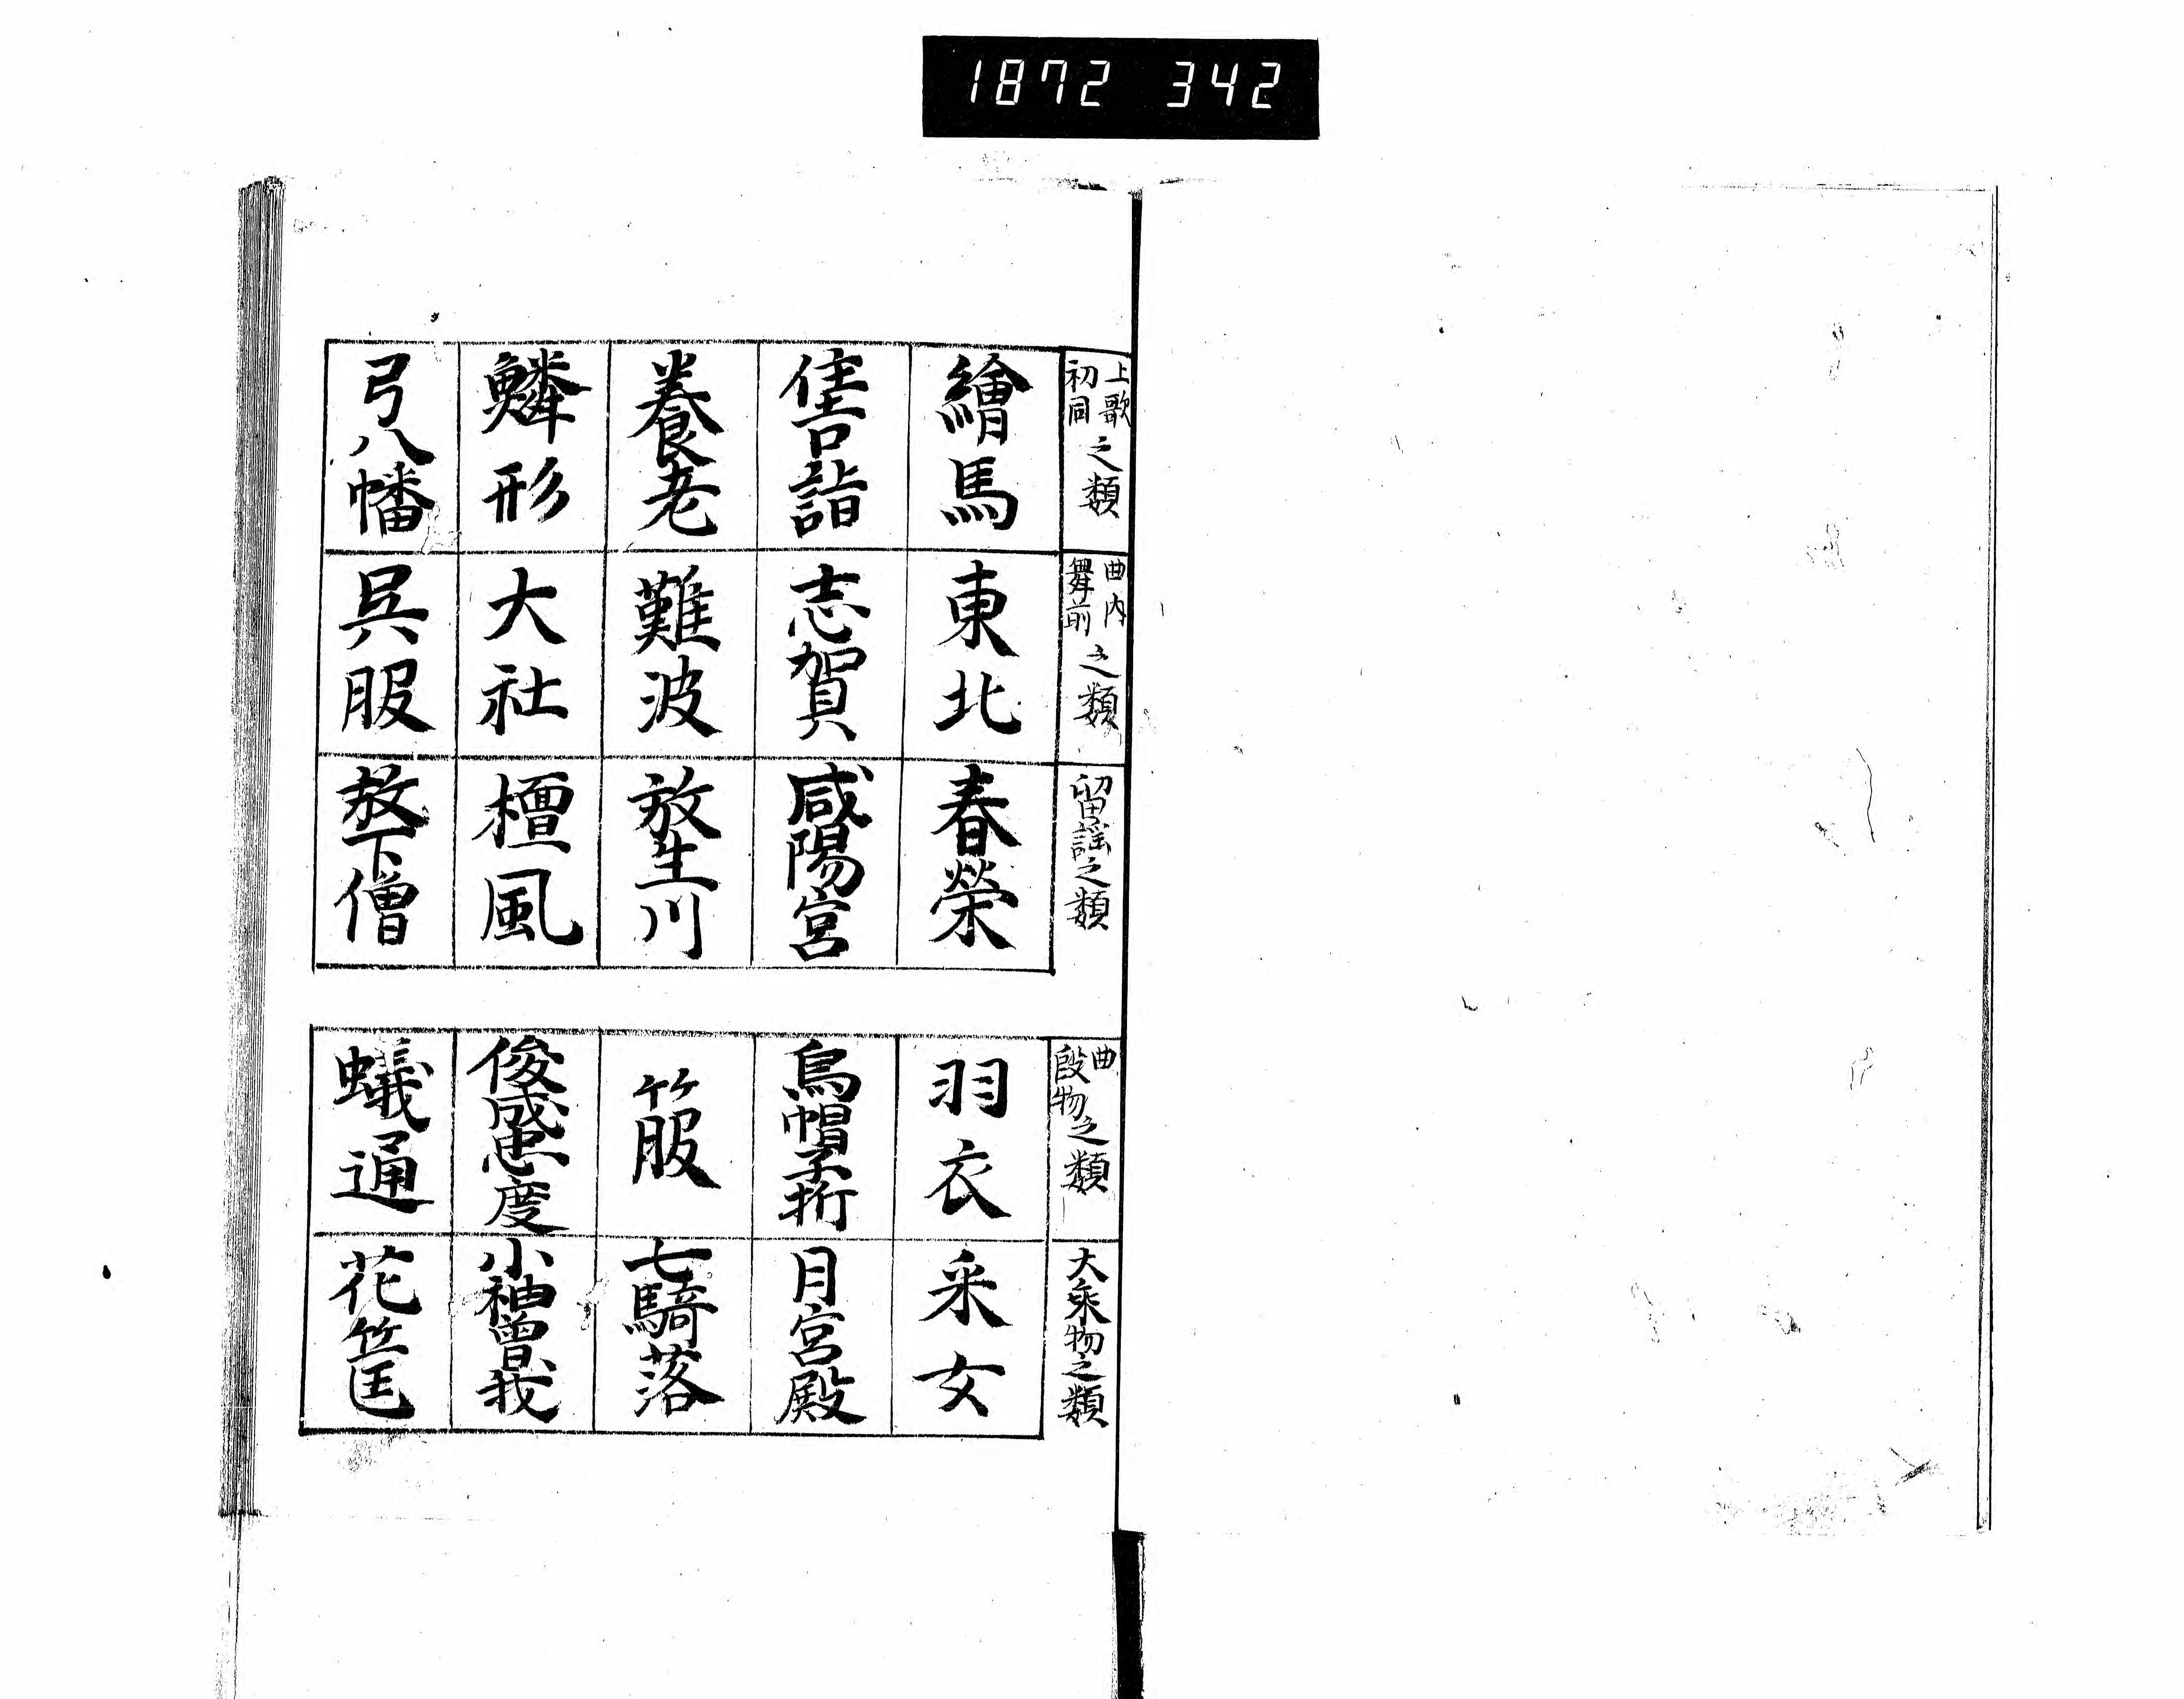 1872 342
上歌初同之類
繪馬
住吉詣
養老
鱗形
弓八幡
曲内舞前之類
東北
志賀
難波
大社
呉服
留謡之類
春榮
咸陽宮
放生川
檀風
放下僧
曲段物之類
羽衣
烏帽子折
箙
俊成忠度
蟻通
大乗物之類
采女
月宮殿
七騎落
小袖曽我
花筐